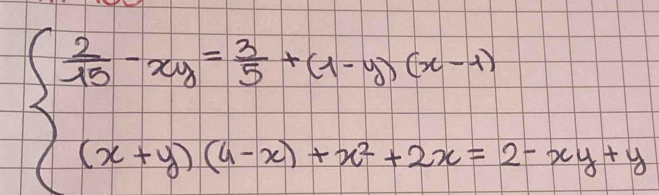 2/15 - xy = 3/5 + (1 - y)(x - 1)
(x + y)(4 - x) + x² + 2x = 2 - xy + y